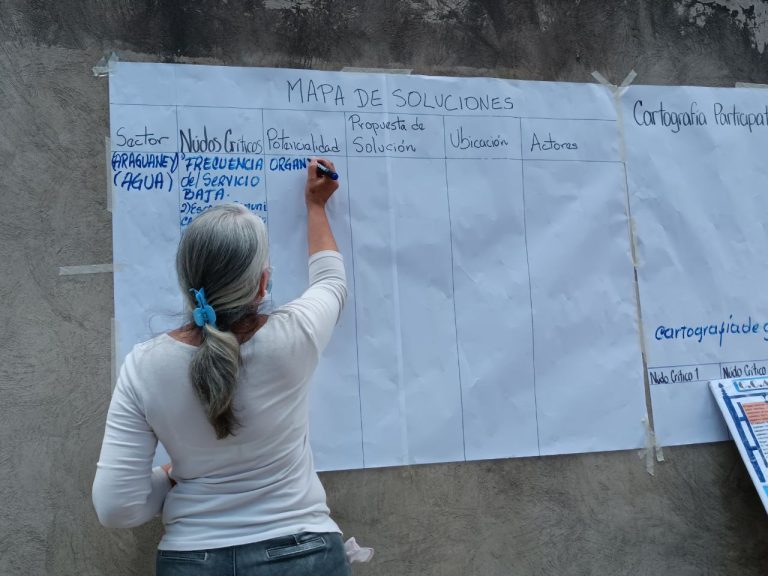 MAPA DE SOLUCIONES
Sector
Núdos Críticos
Potencialidad
Propuesta de
Solución
Ubicación
Actores
(ARAGUANEY)
(AGUA)
FRECUENCIA
de/SERVICIO
BAJA.
ORGAN
Cartografía
cartografía de
Nudo Crítico 1
Nudo Crítico